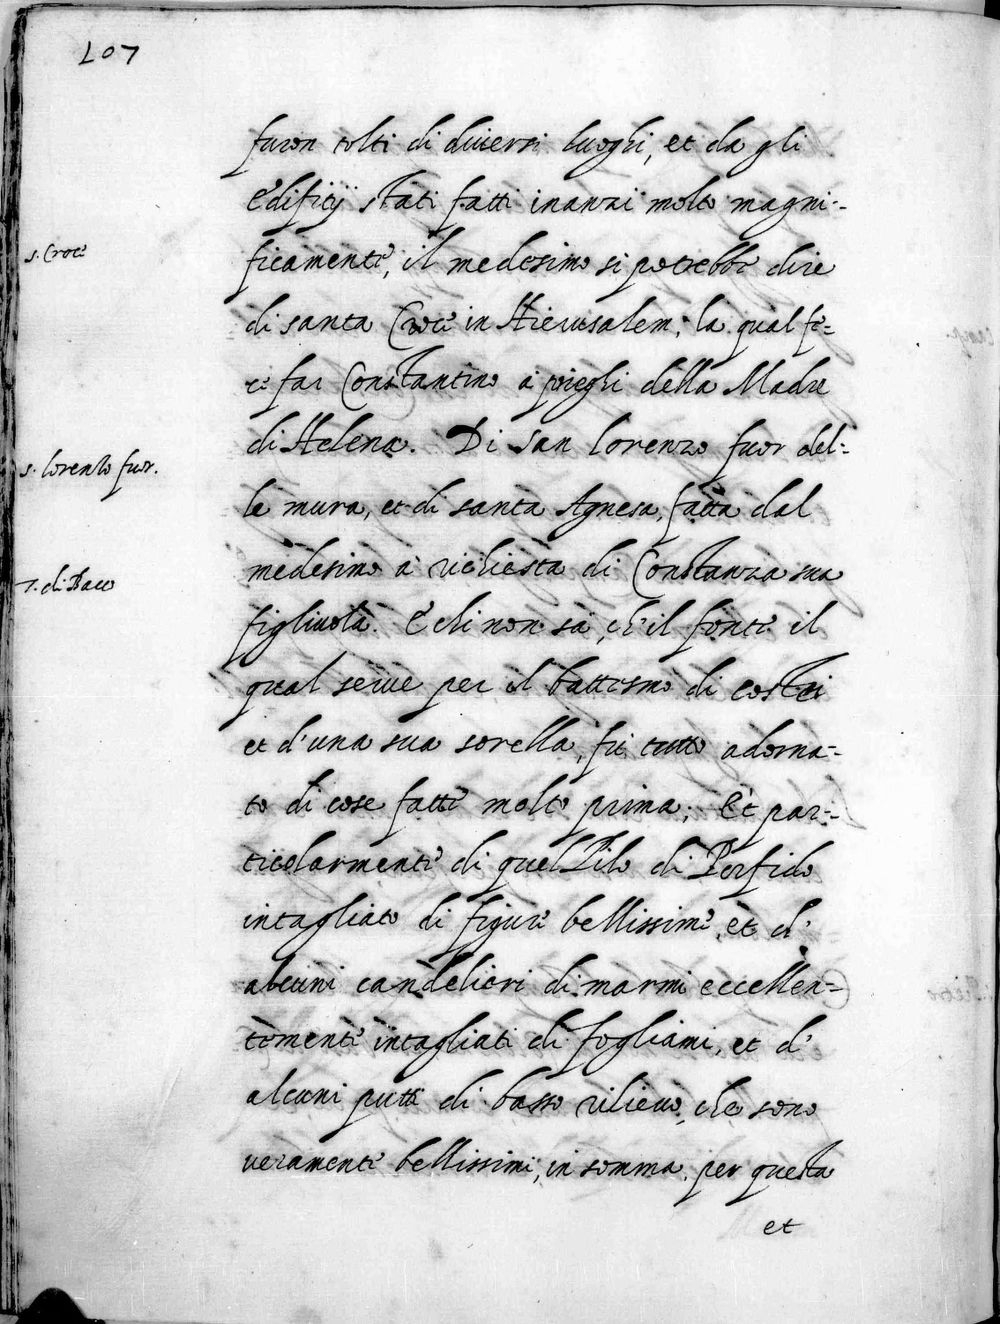 107
furon tolti di diuersi luoghi, et da gli
Edificij stati fatti inanzi molto magni=
s. Croce
ficamente, il medesimo si potrebbe dire
di santa Croce in Hierusalem, la qual fe=
ce far Constantino a prieghi della Madre
di Helena. Di San lorenzo fuor del=
s. lorenzo fuor.
le mura, et di santa Agnesa, fatta dal
medesimo à richiesta di Constanza sua
T. di Baco
figliuola. E chi non sà, ch'il fonte il
qual serue per il battesmo di costei
et d'una sua sorella, fù tutto adorna=
to di cose fatte molto prima; Et par=
ticolarmente di quel Pilo di Porfido
intagliato di figure bellissime, et d'
alcuni candelieri di marmi eccellen=
temente intagliati di fogliami, et d'
alcuni putti di basso rilieuo, che sono
ueramente bellissimi, in somma per questa
et